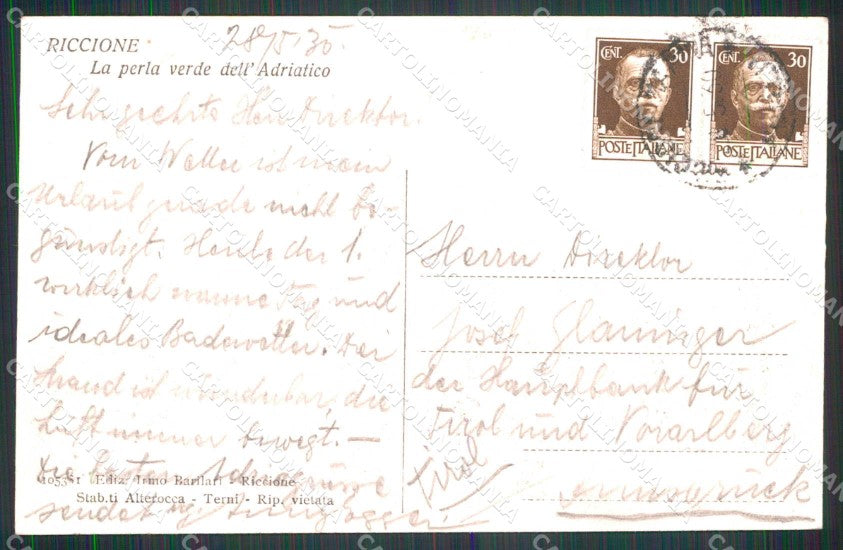 RICCIONE
La perla verde dell'Adriatico
28/5 30.
Sehr geehrter Herr Direktor.
Vom Wetter ist mein
Urlaub gerade nicht be-
günstigt. Heute der 1.
wirklich warme Tag und
ideales Badewetter. Der
Strand ist wunderbar, die
Luft immer bewegt. —
Die besten grüsse
sendet
CENT. 30
POSTE ITALIANE
CENT. 30
POSTE ITALIANE
Herrn Direktor
Josef
der Hauptbank für
Tirol und Vorarlberg
Innsbruck
Tirol
105381 Ediz. Irmo Barilari - Riccione
Stab.ti Alterocca - Terni - Rip. vietata
CARTOLINOMANIA